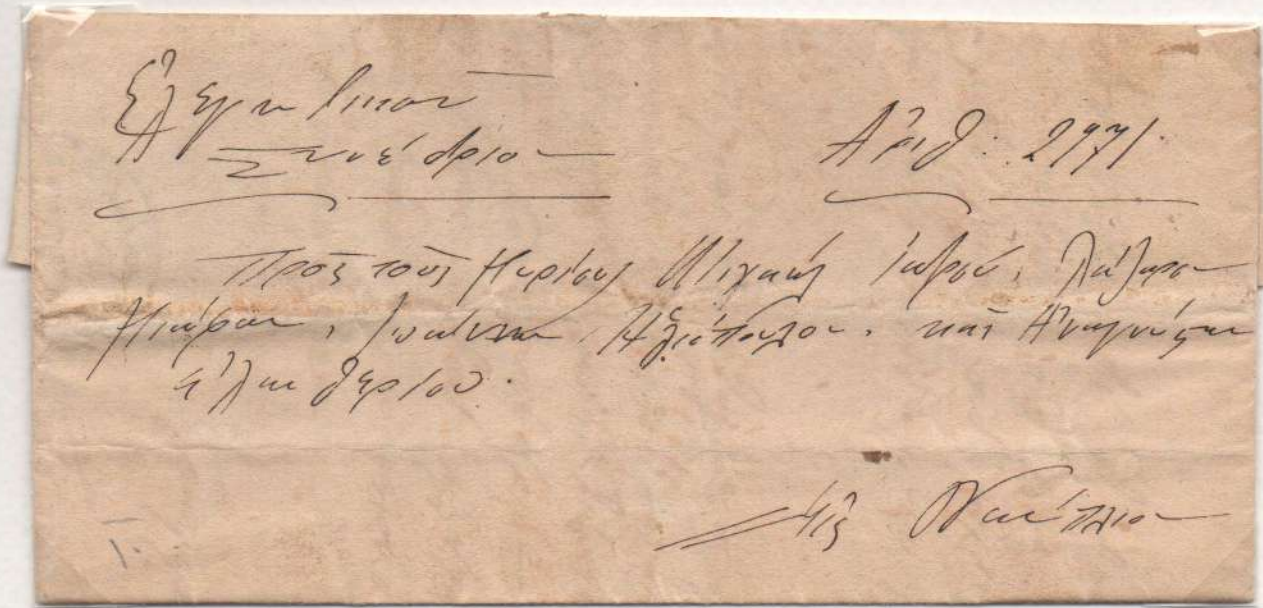 Ἐλεγκτικὸν
Συνέδριον
Ἀριθ: 2971.
Πρὸς τοὺς Κυρίους Μιχαὴλ Ἰατροῦ, Λάζαρον
Ἰωάννην Ἠλιόπουλον, καὶ Ἀναγνώστην
Ἐλευθερίου.
Εἰς Ναύπλιον